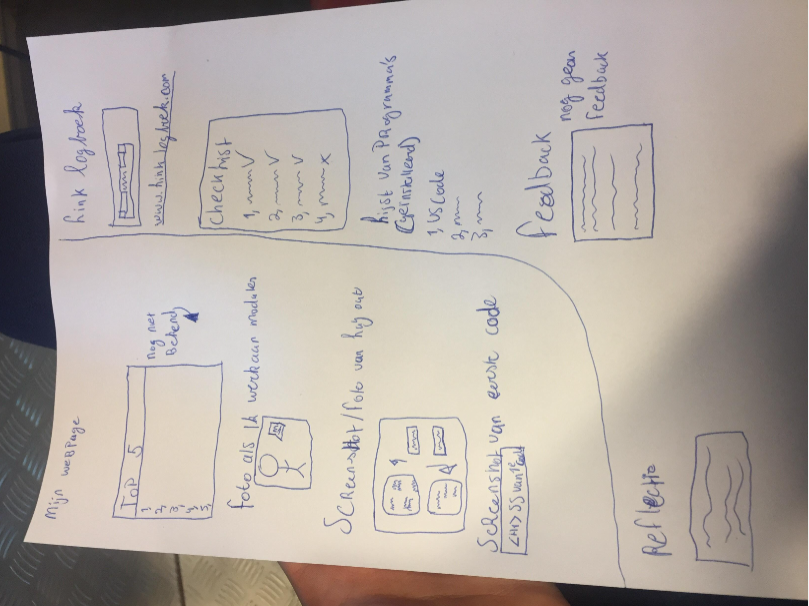 Mijn webPage
TOP 5
1,
2,
3,
4,
5,
nog niet
Bekend
foto als ik werk aan modulen
Screenshot/foto van lay out
Screenshot van eerste code
<H1> SS van 1e code
Link logboek
www.linklogboek.com
Checklist
1, V
2, V
3, V
4, x
Lijst van PRogramma's
(geinstalleerd)
1, VS Code
2,
3,
Feedback
nog geen
feedback
Reflectie